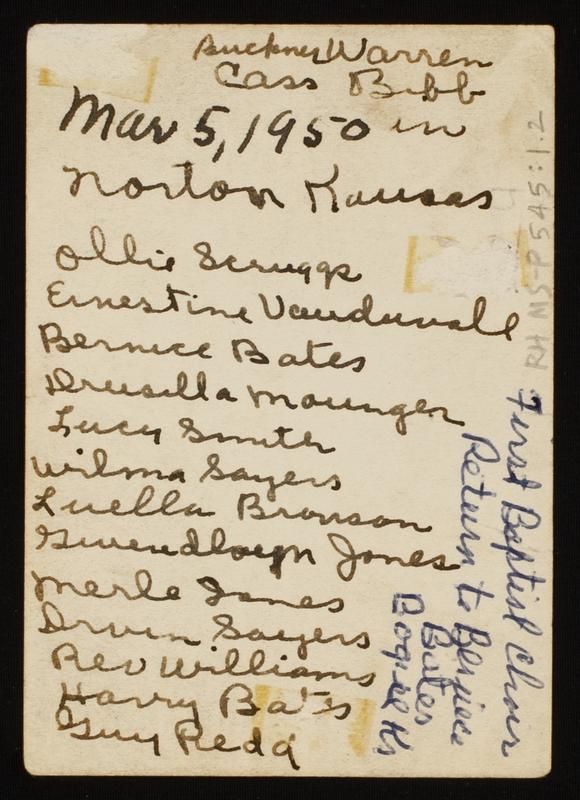 Buckner Warren
Cass Bibb
Mar 5, 1950 in
Norton Kansas
Ollie Scruggs
Ernestine Vanduvall
Bernice Bates
Drusilla Mounger
Lucy Smith
Wilma Sayers
Luella Bronson
Gwendloyn Jones
Merle Jones
Orven Sayers
Rev Williams
Harry Bates
Guy Redd
First Baptist Choir
Return to Bernice
Bates
Bogue Ks
RH MS-P 545:1.2